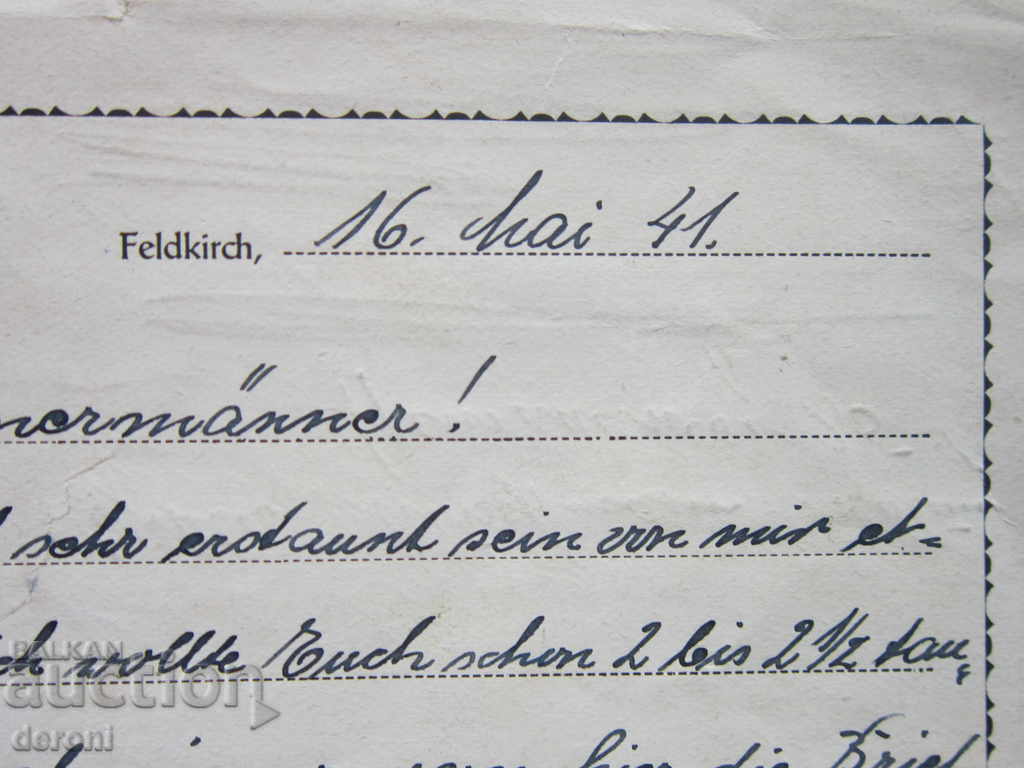 Feldkirch, 16. Mai 41.
nermänner!
sehr erstaunt sein von mir et-
ch wollte Euch schon 2 bis 2 1/2 tau-
hier die Brief
BALKAN
auction
deroni